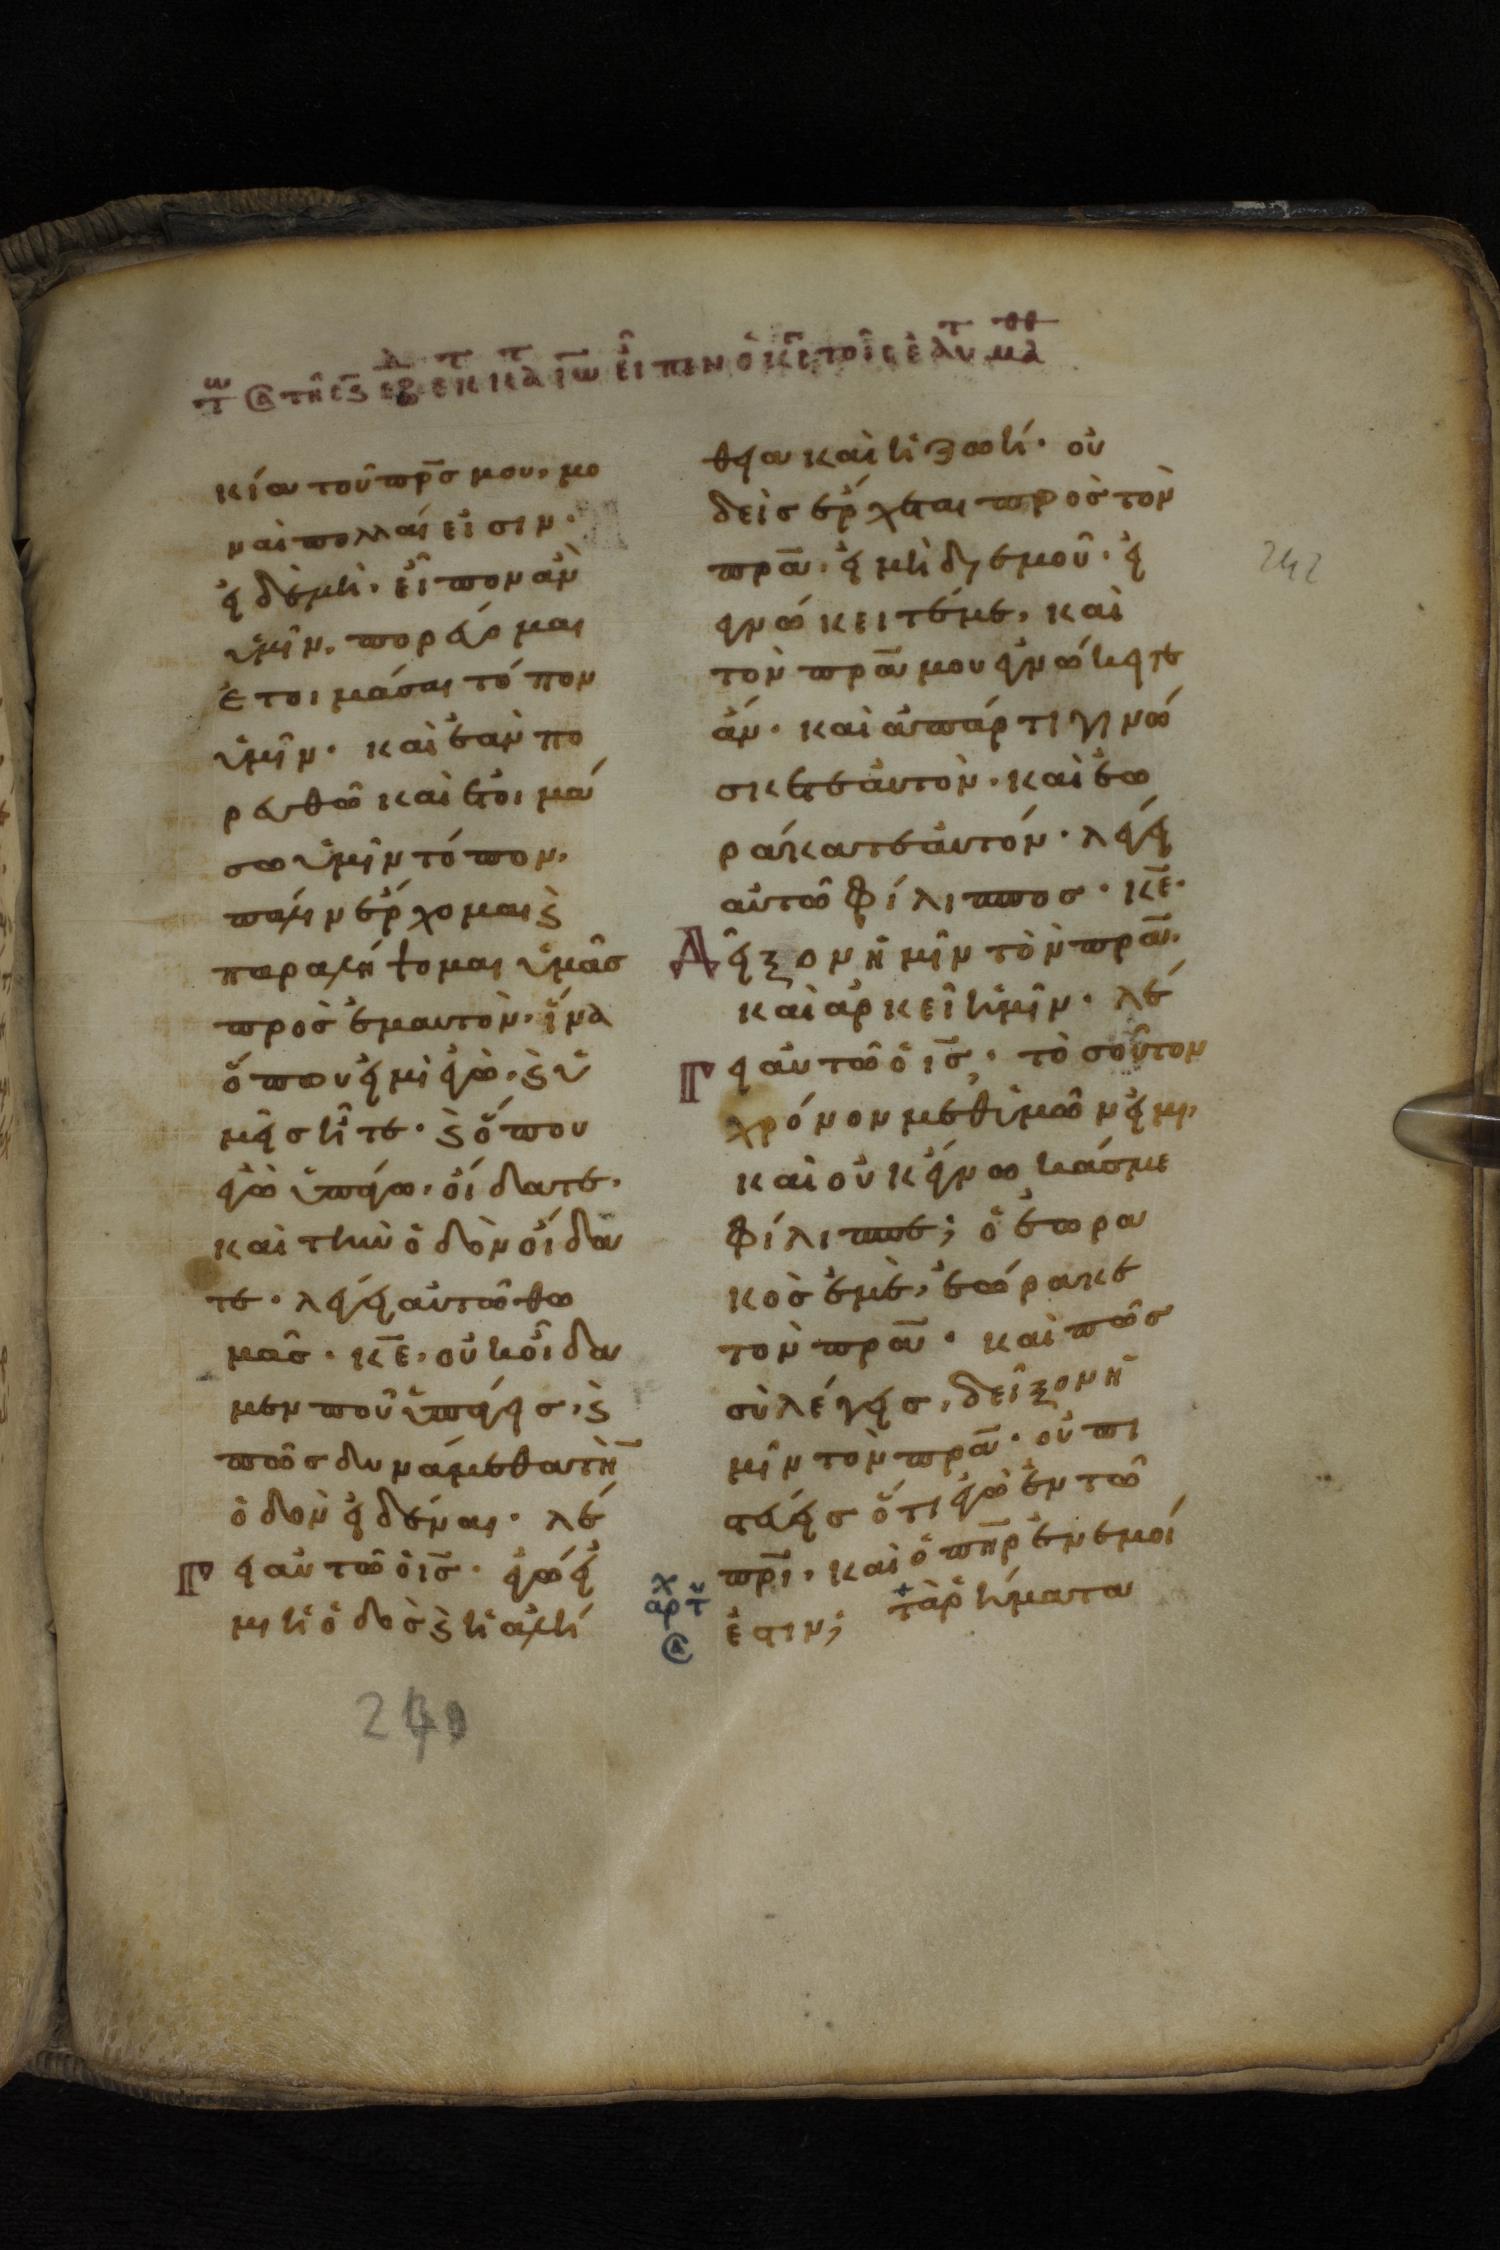 τῷ αῳ τῆς ϛ ἑβδ ἐκ τ κατ ιω εἶπεν ὁ κς τοῖς ἑαυτ μαθθ
κία τοῦ πρς μου, μο
ναὶ πολλαί εἰσιν·
εἰ δὲ μὴ· εἶπον ἂν
ὑμῖν, πορεύομαι
ἑτοιμάσαι τόπον
ὑμῖν· καὶ ἐὰν πο
ρευθῶ καὶ ἑτοιμά
σω ὑμῖν τόπον,
πάλιν ἔρχομαι ϗ
παραλήψομαι ὑμᾶς
πρὸς ἐμαυτὸν· ἵνα
ὅπου εἰμὶ ἐγὼ, ϗ ὑ
μεῖς ἦτε· ϗ ὅπου
ἐγὼ ὑπάγω, οἴδατε,
καὶ τὴν ὁδὸν οἴδα
τε· λέγει αὐτῶ θω
μᾶς· κε, οὐκ οἴδα
μεν ποῦ ὑπάγεις, ϗ
πῶς δυνάμεθα τὴν
ὁδὸν εἰδέναι· λέ
γει αὐτῶ ὁ ις· ἐγώ εἰ
μι ἡ ὁδὸς ϗ ἡ ἀλή
θεια καὶ ἡ ζωή· οὐ
δεὶς ἔρχεται πρὸς τὸν
πρα· εἰ μὴ δι ἐμοῦ· εἰ
ἐγνώκειτέ με, καὶ
τὸν πρα μου ἐγνώκειτε
ἄν· καὶ ἀπάρτι γινώ
σκετε αὐτὸν· καὶ ἑω
ράκατε αὐτόν· λέγει
αὐτῶ φίλιππος· κε·
Δεῖξον ἡμῖν τὸν πρα·
καὶ ἀρκεῖ ἡμῖν· λέ
γει αὐτῶ ὁ ις· τοσοῦτον
χρόνον μεθ ὑμῶν εἰμι,
καὶ οὐκ ἔγνωκάς με
φίλιππε; ὁ ἑωρα
κὸς ἐμὲ, ἑώρακε
τὸν πρα· καὶ πῶς
σὺ λέγεις, δεῖξον ἡ
μῖν τὸν πρα· οὐ πι
στεύεις ὅτι ἐγὼ ἐν τῶ
πρι, καὶ ὁ πηρ ἐν ἐμοί
ἐστιν; τὰ ῥήματα
αρχ τυ
α
242
240